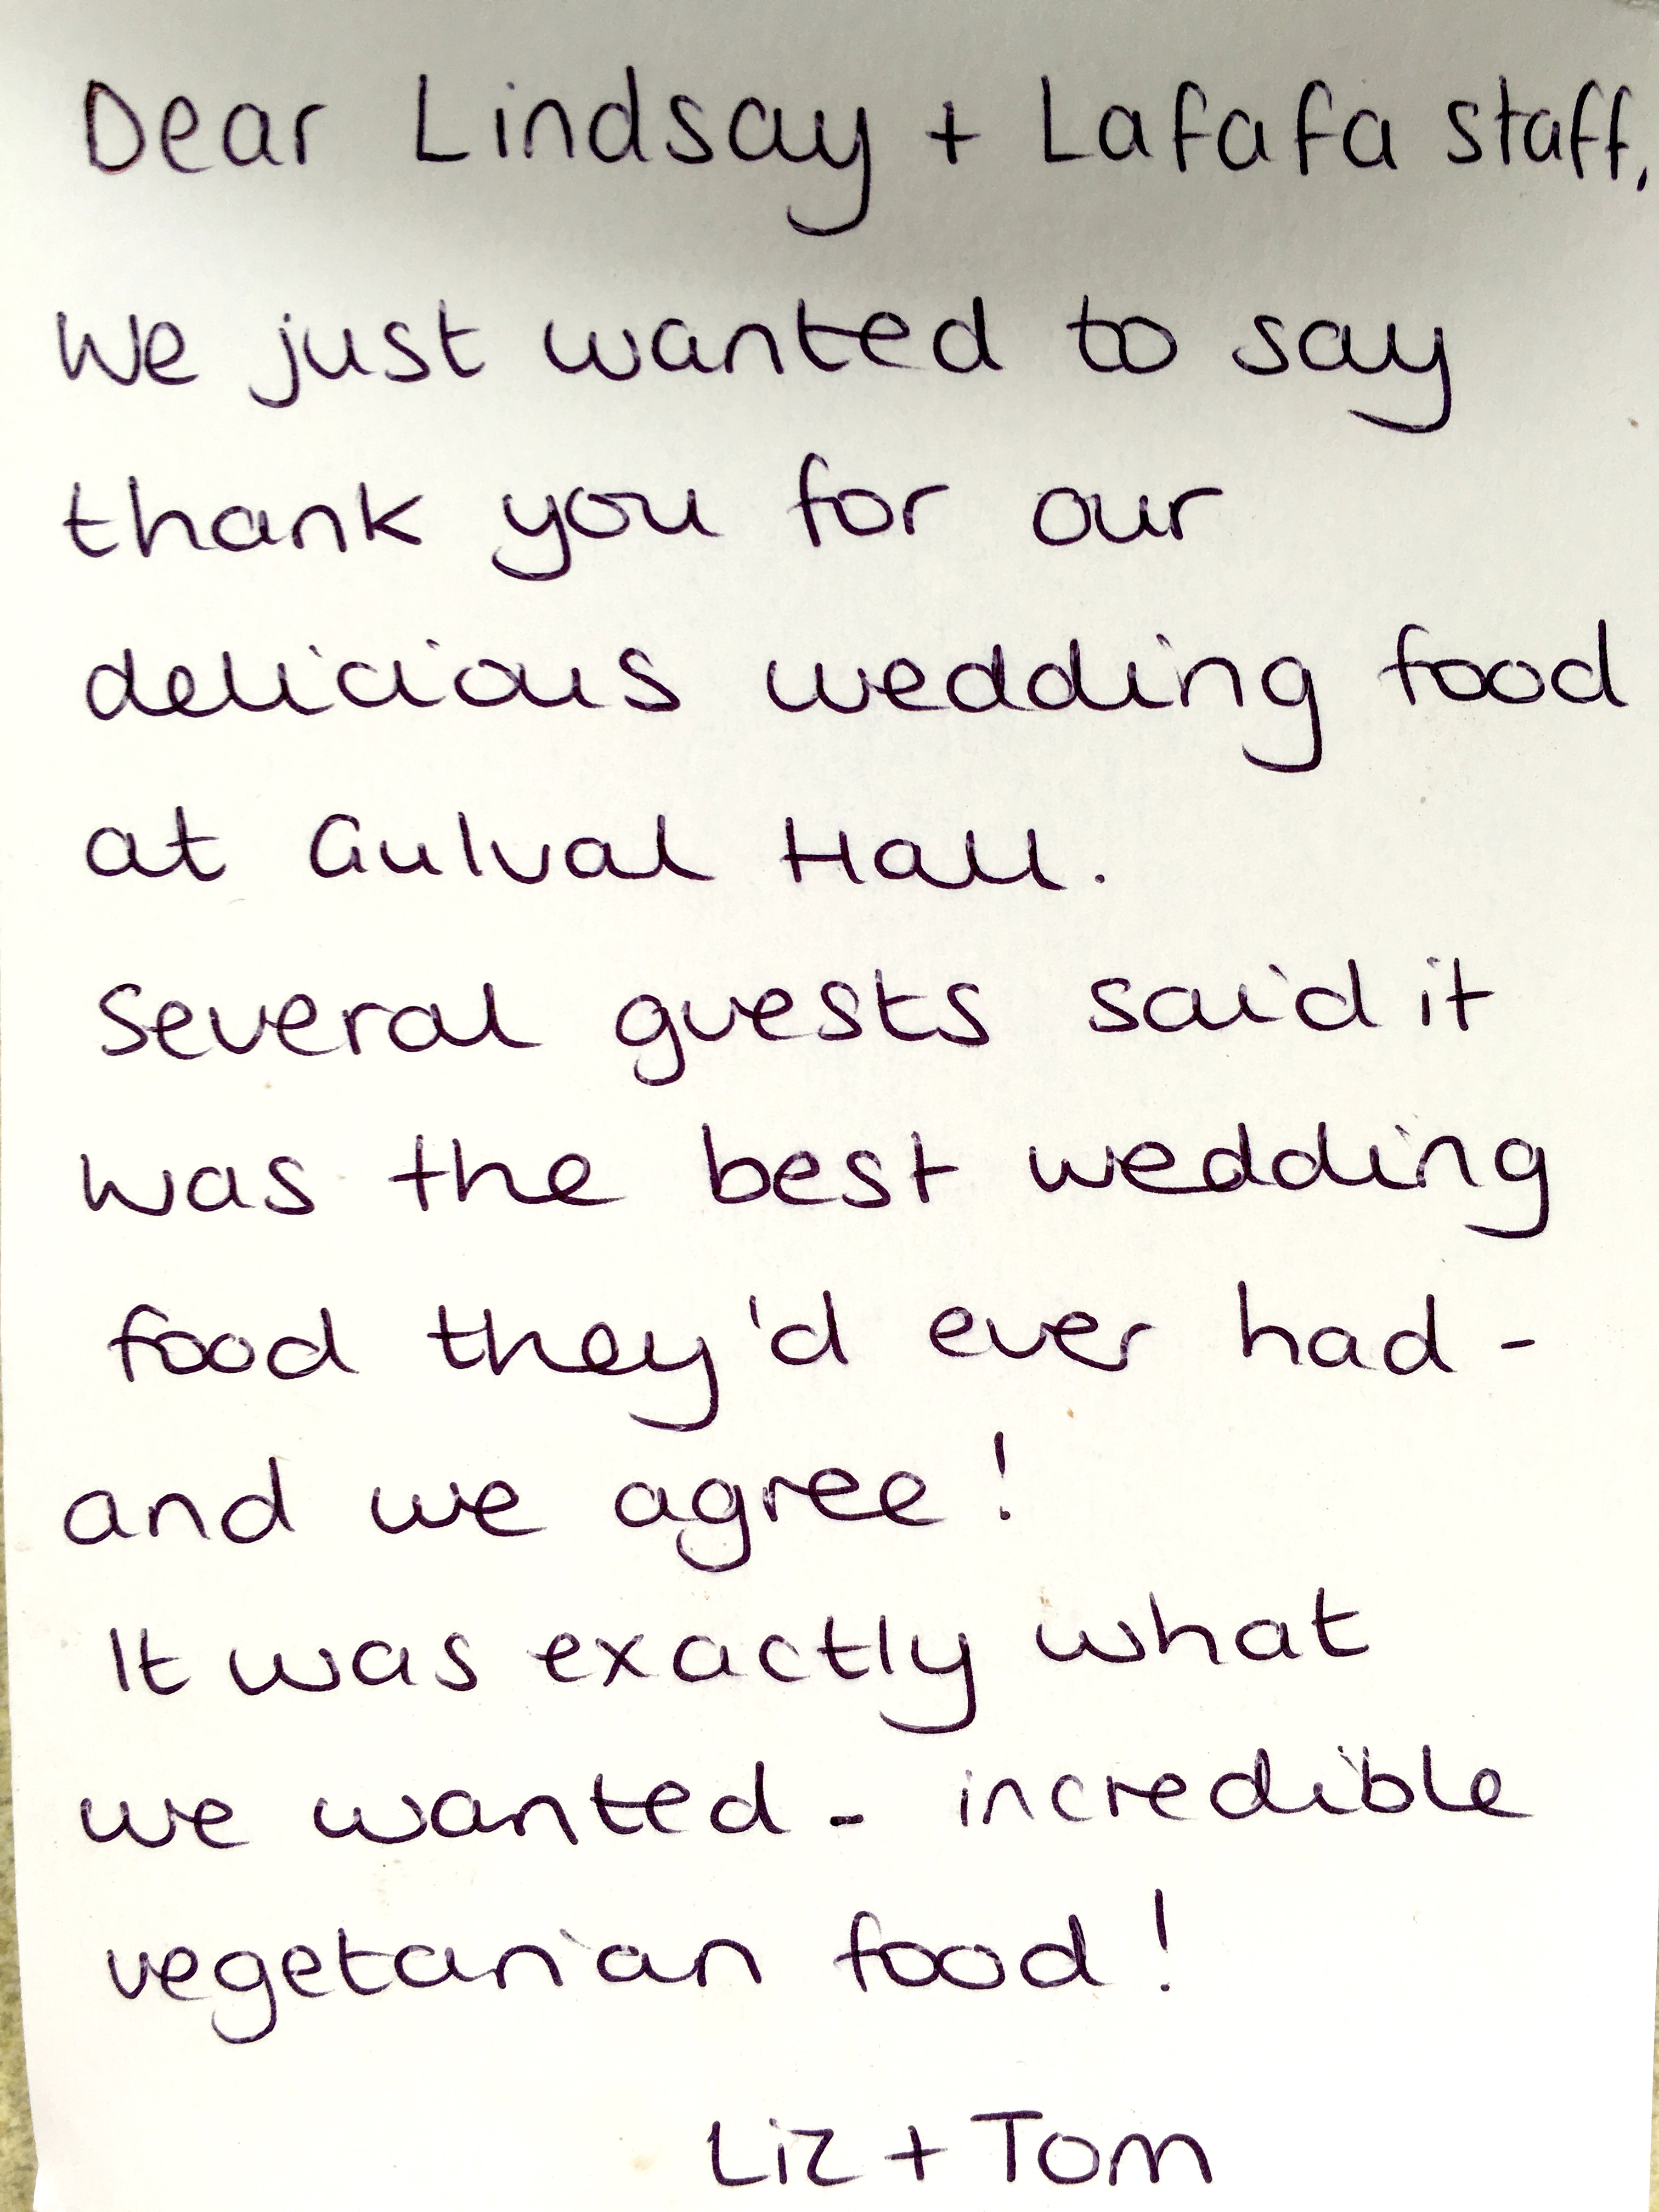 Dear Lindsay + Lafafa staff,
We just wanted to say
thank you for our
delicious wedding food
at Gulval Hall.
Several guests said it
was the best wedding
food they'd ever had -
and we agree!
It was exactly what
we wanted - incredible
vegetarian food!
Liz + Tom